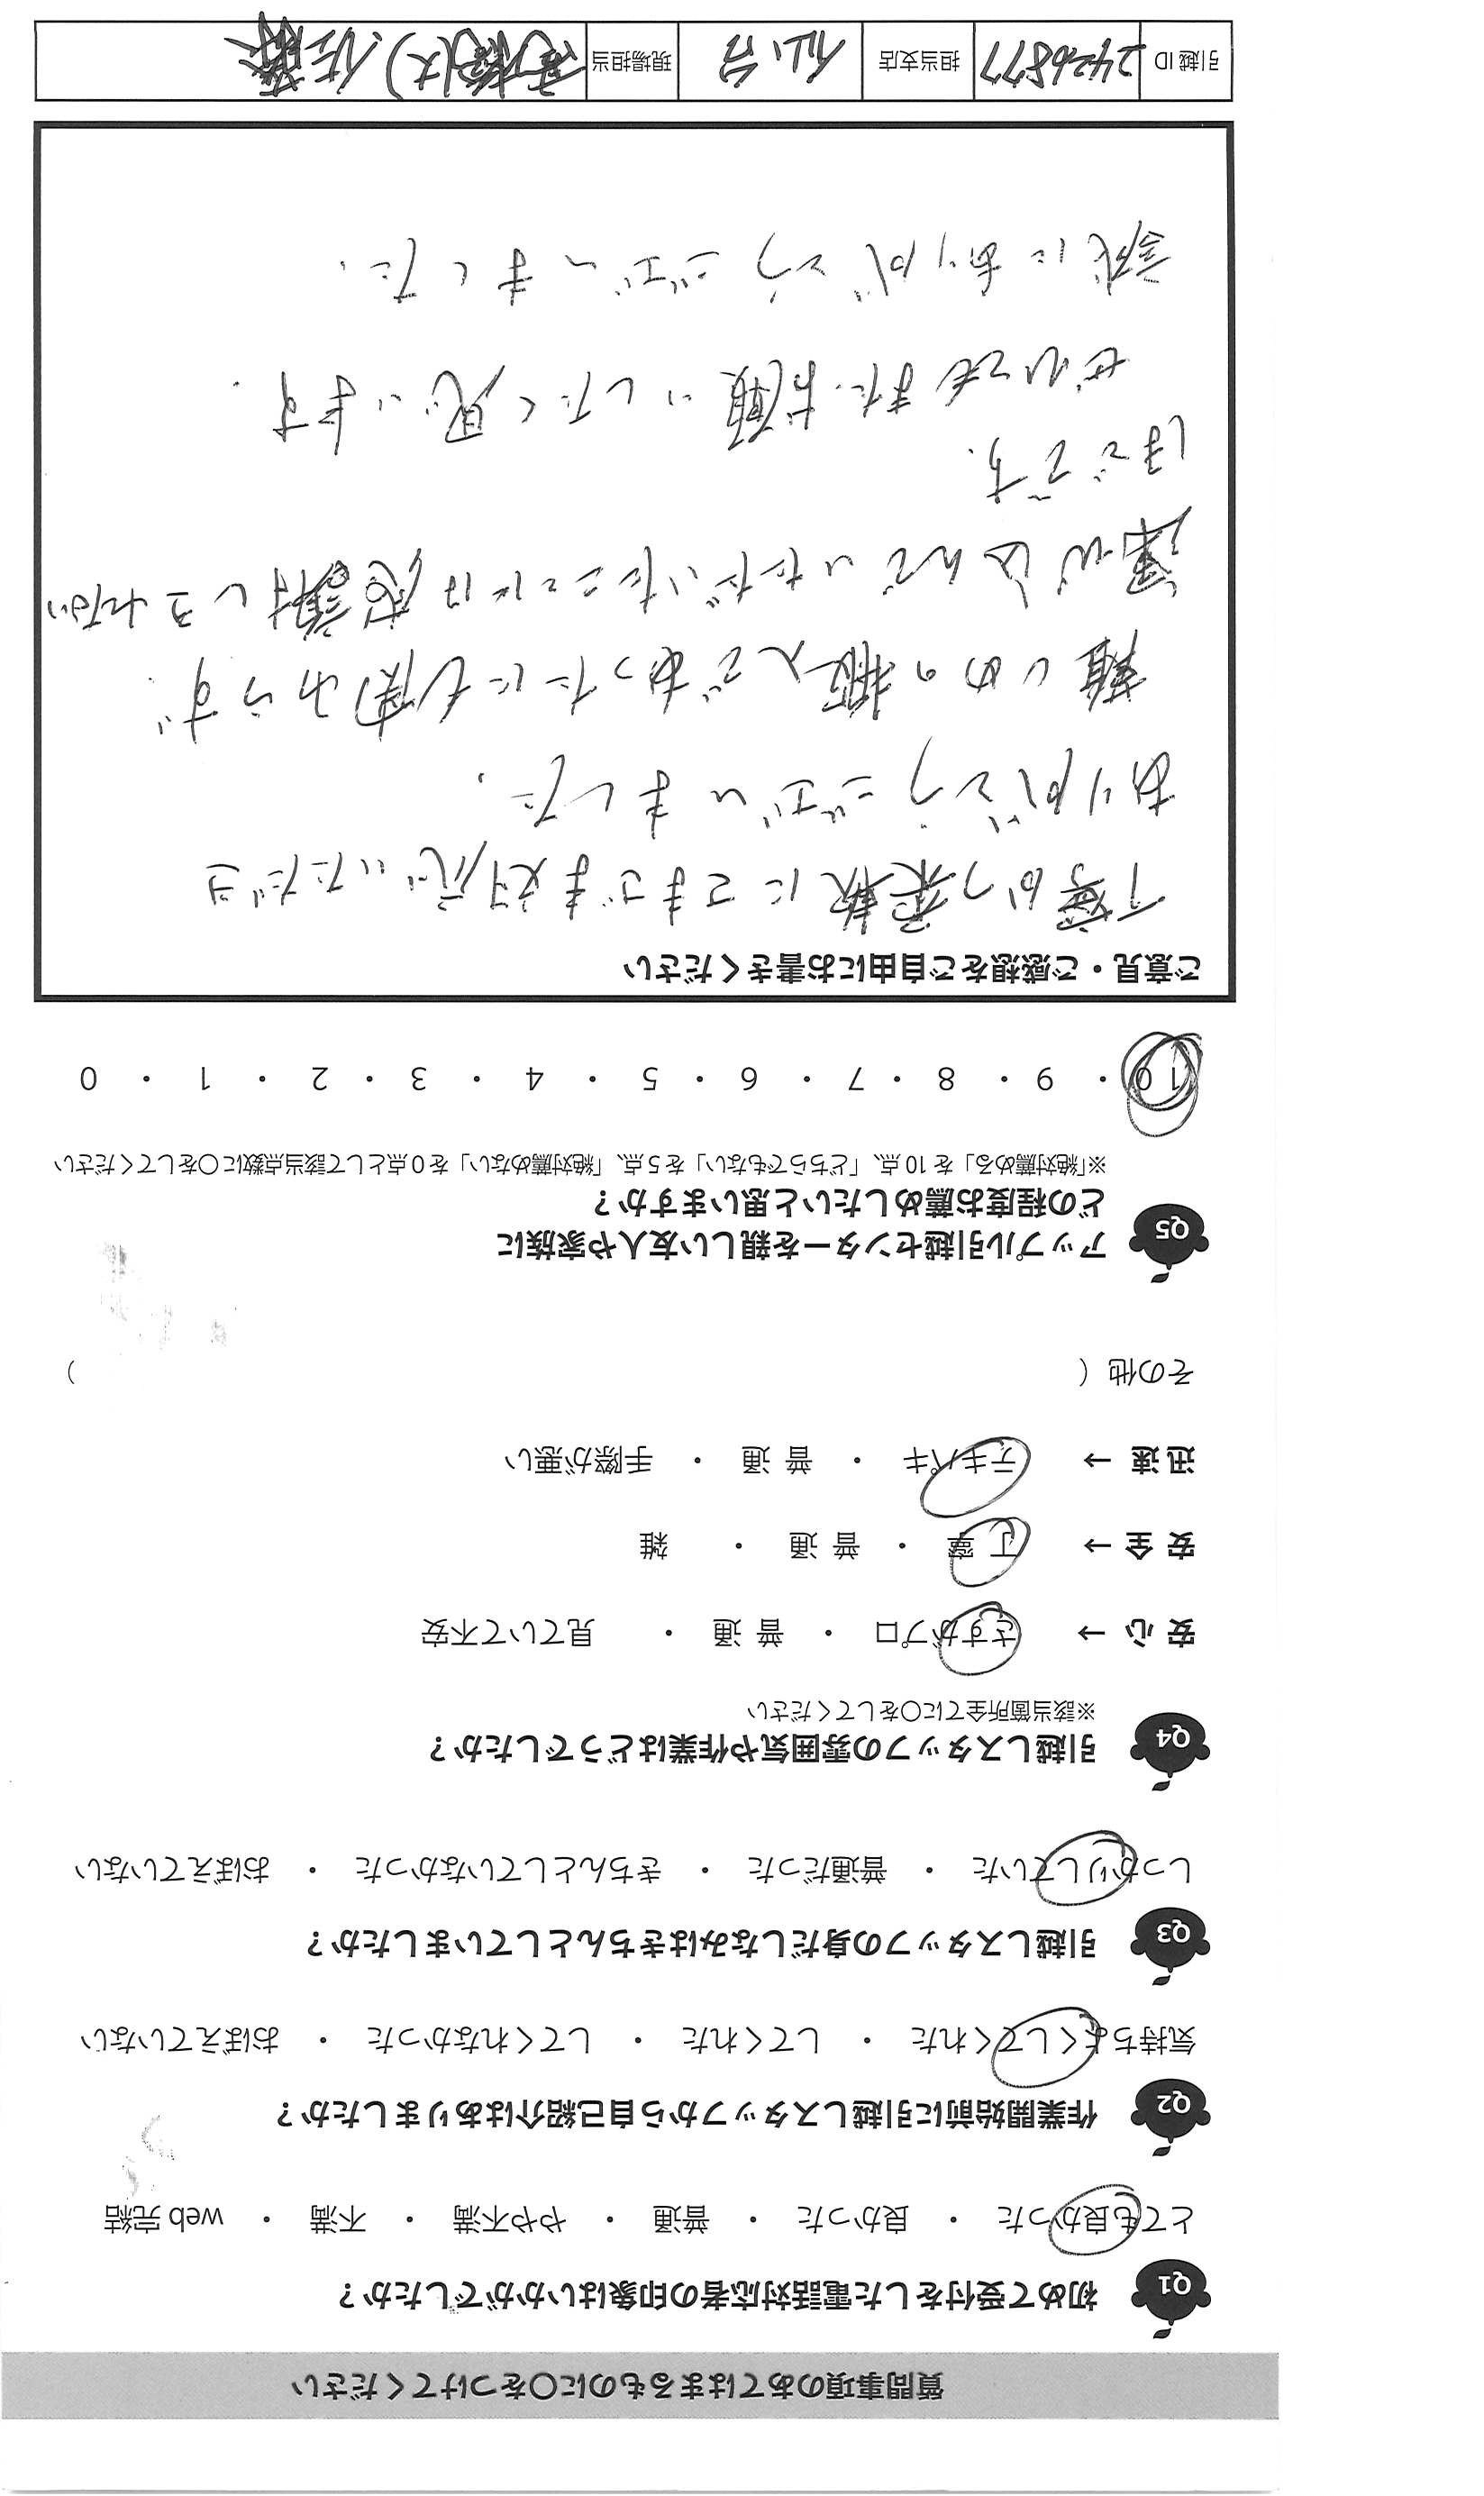 質問事項のあてはまるものに○をつけてください
Q1 初めて受付をした電話対応者の印象はいかがでしたか？
とても良かった ・ 良かった ・ 普通 ・ やや不満 ・ 不満 ・ web完結
Q2 作業開始前に引越しスタッフから自己紹介はありましたか？
気持ちよくしてくれた ・ してくれた ・ してくれなかった ・ おぼえていない
Q3 引越しスタッフの身だしなみはきちんとしていましたか？
しっかりしていた ・ 普通だった ・ きちんとしていなかった ・ おぼえていない
Q4 引越しスタッフの雰囲気や作業はどうでしたか？
※該当箇所全てに○をしてください
安心 → さすがプロ ・ 普通 ・ 見ていて不安
安全 → 丁寧 ・ 普通 ・ 雑
迅速 → テキパキ ・ 普通 ・ 手際が悪い
その他（ ）
Q5 アップル引越センターを親しい友人や家族に
どの程度お薦めしたいと思いますか？
※「絶対薦める」を10点、「どちらでもない」を5点、「絶対薦めない」を0点として該当点数に○をしてください
10 ・ 9 ・ 8 ・ 7 ・ 6 ・ 5 ・ 4 ・ 3 ・ 2 ・ 1 ・ 0
ご意見・ご感想をご自由にお書きください
丁寧かつ柔軟にさまざま対応いただき
ありがとうございました。
難しめの搬入であったにも関わらず、
運び込んでいただいたことには感謝しきれない
ほどです。
ぜひともまたお願いしたく思います。
誠にありがとうございました。
引越ID 2426877 担当支店 仙台 現場担当 高橋(大)、佐藤